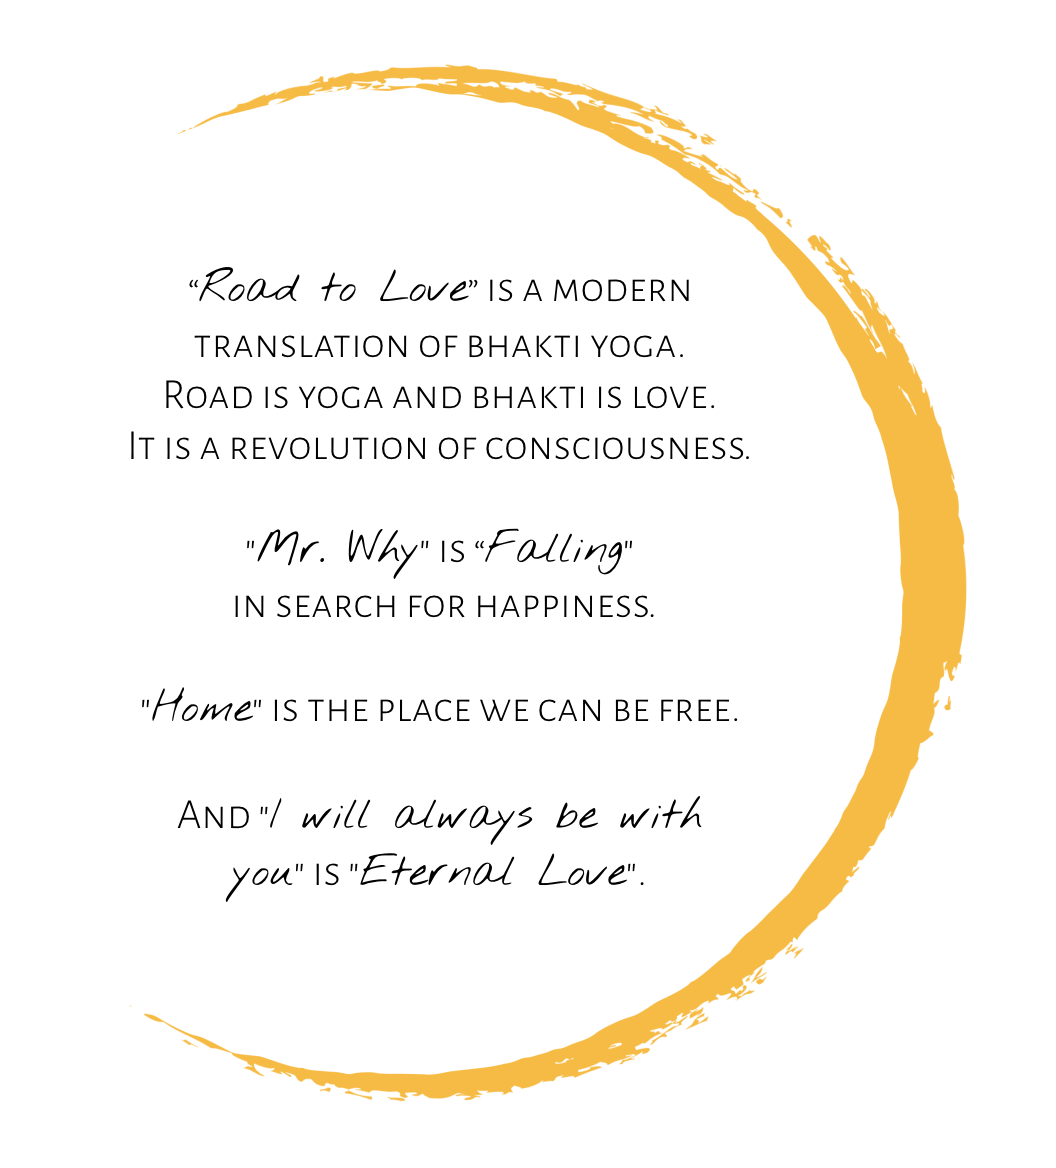 “Road to Love” is a modern
translation of bhakti yoga.
Road is yoga and bhakti is love.
It is a revolution of consciousness.
"Mr. Why" is “Falling"
in search for happiness.
"Home" is the place we can be free.
And "I will always be with
you" is "Eternal Love".